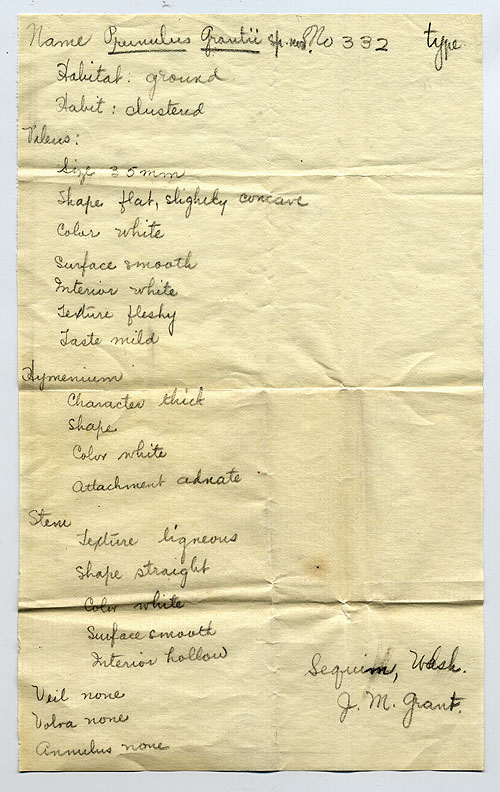 Name Prunulus Grantii sp. nov. No 332 type
Habitat: ground
Habit: clustered
Pileus:
Size 35mm
Shape flat, slightly concave
Color white
Surface smooth
Interior white
Texture fleshy
Taste mild
Hymenium
Character thick
Shape
Color white
Attachment adnate
Stem
Texture ligneous
Shape straight
Color white
Surface smooth
Interior hollow
Sequim, Wash.
J. M. Grant.
Veil none
Volva none
Annulus none